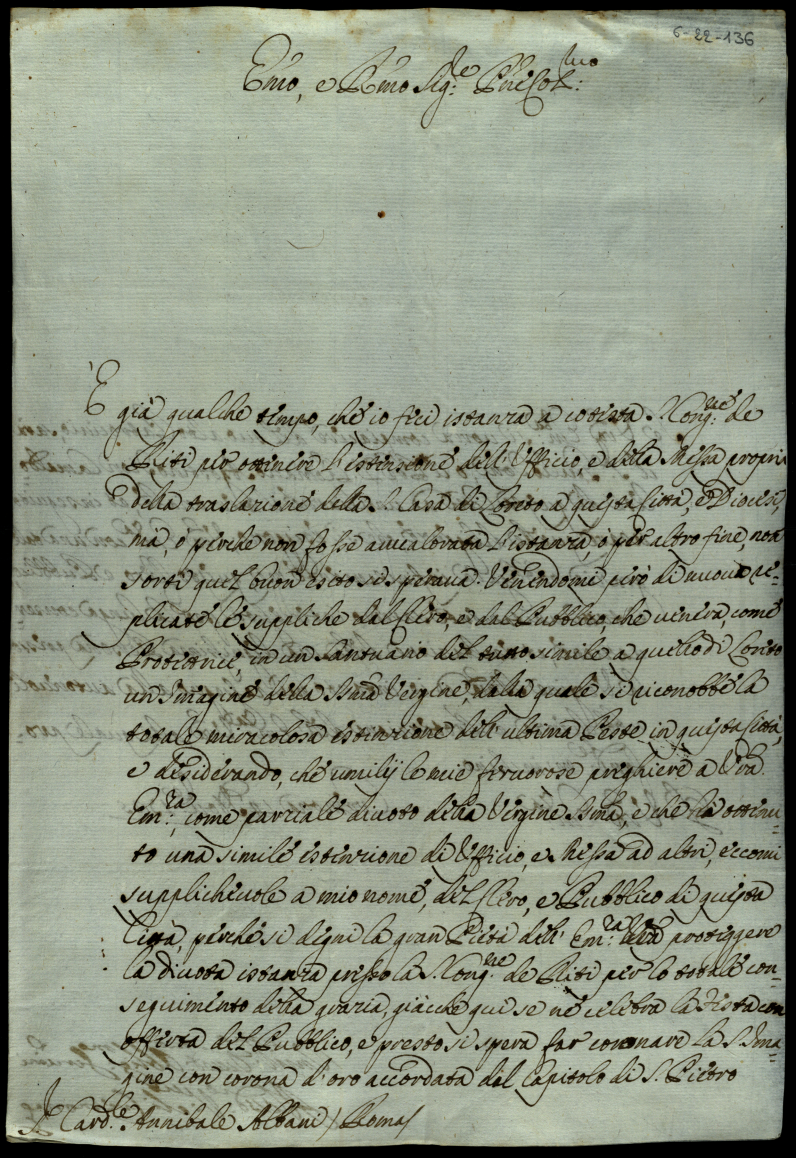 6-22-136
Emo, e Rmo Sig.re Pne Col.mo
È già qualche tempo, che io feci istanza a cotesta S. Cong.ne de
Riti per ottenere l'estensione dell'Ufficio, e della Messa propri
della traslazione della S. Casa di Loreto a questa Città, e Diocesi,
mà, ò perche non fosse avvalorata l'istanza, ò per altro fine, non
sortì quel buon esito si sperava. Venendomi però di nuovo re-
plicate le suppliche dal Clero, e dal Pubblico, che venera, come
Protettrice, in un Santuario del tutto simile a quello di Loreto
un Imagine della Bma Vergine, dalla quale si riconobbe la
totale miracolosa estinzione dell'ultima Peste in questa Città,
e desiderando, che umilij le mie fervorose preghiere a Vra
Em.za, come parziale divoto della Vergine Bma, e che hà ottenu-
to una simile estenzione di Ufficio, e Messa ad altri, eccomi
supplichevole a mio nome, del Clero, e Pubblico di questa
Città, perche si degni la gran Pietà dell' Em.za Vra proteggere
la divota istanza presso la S. Cong.ne de Riti per lo totale con-
seguimento della grazia, giacche qui se ne celebra la Festa con
offerta del Pubblico, e presto si spera far coronare la S. Ima-
gine con corona d'oro accordata dal Capitolo di S. Pietro
Sr. Card.le Annibale Albani / Roma /